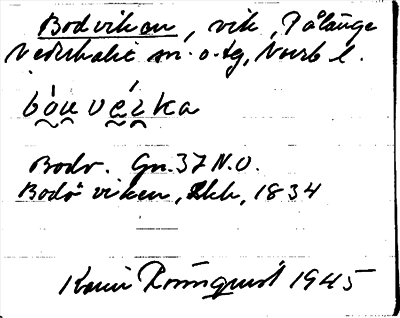 Bodviken, vik, Pålänge
Nederkalix sn. o. tg, Norrb l.
bóuvérka
Bodv. Gn. 37 N.O.
Bodö viken, Skk, 1834
Karin Rönnqvist 1945